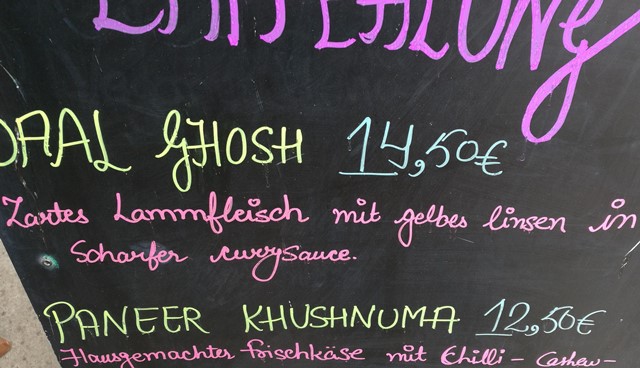 EMPFEHLUNG
DAAL GHOSH 14,50€
Zartes Lammfleisch mit gelbes linsen in
Scharfer currysauce.
PANEER KHUSHNUMA 12,50€
Hausgemachter frischkäse mit Chilli - Cashew -